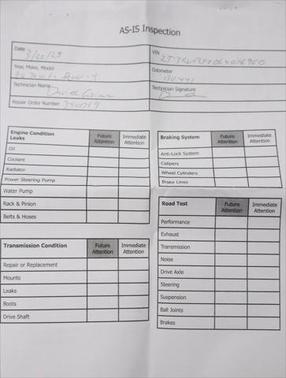 AS-IS Inspection
Date
VIN
Year, Make, Model
Odometer
Technician Name
Technician Signature
Repair Order Number
Engine Condition
Leaks
Future Attention
Immediate Attention
Oil
Coolant
Radiator
Power Steering Pump
Water Pump
Rack & Pinion
Belts & Hoses
Braking System
Future Attention
Immediate Attention
Anti-Lock System
Calipers
Wheel Cylinders
Brake Lines
Transmission Condition
Future Attention
Immediate Attention
Repair or Replacement
Mounts
Leaks
Boots
Drive Shaft
Road Test
Future Attention
Immediate Attention
Performance
Exhaust
Transmission
Noise
Drive Axle
Steering
Suspension
Ball Joints
Brakes